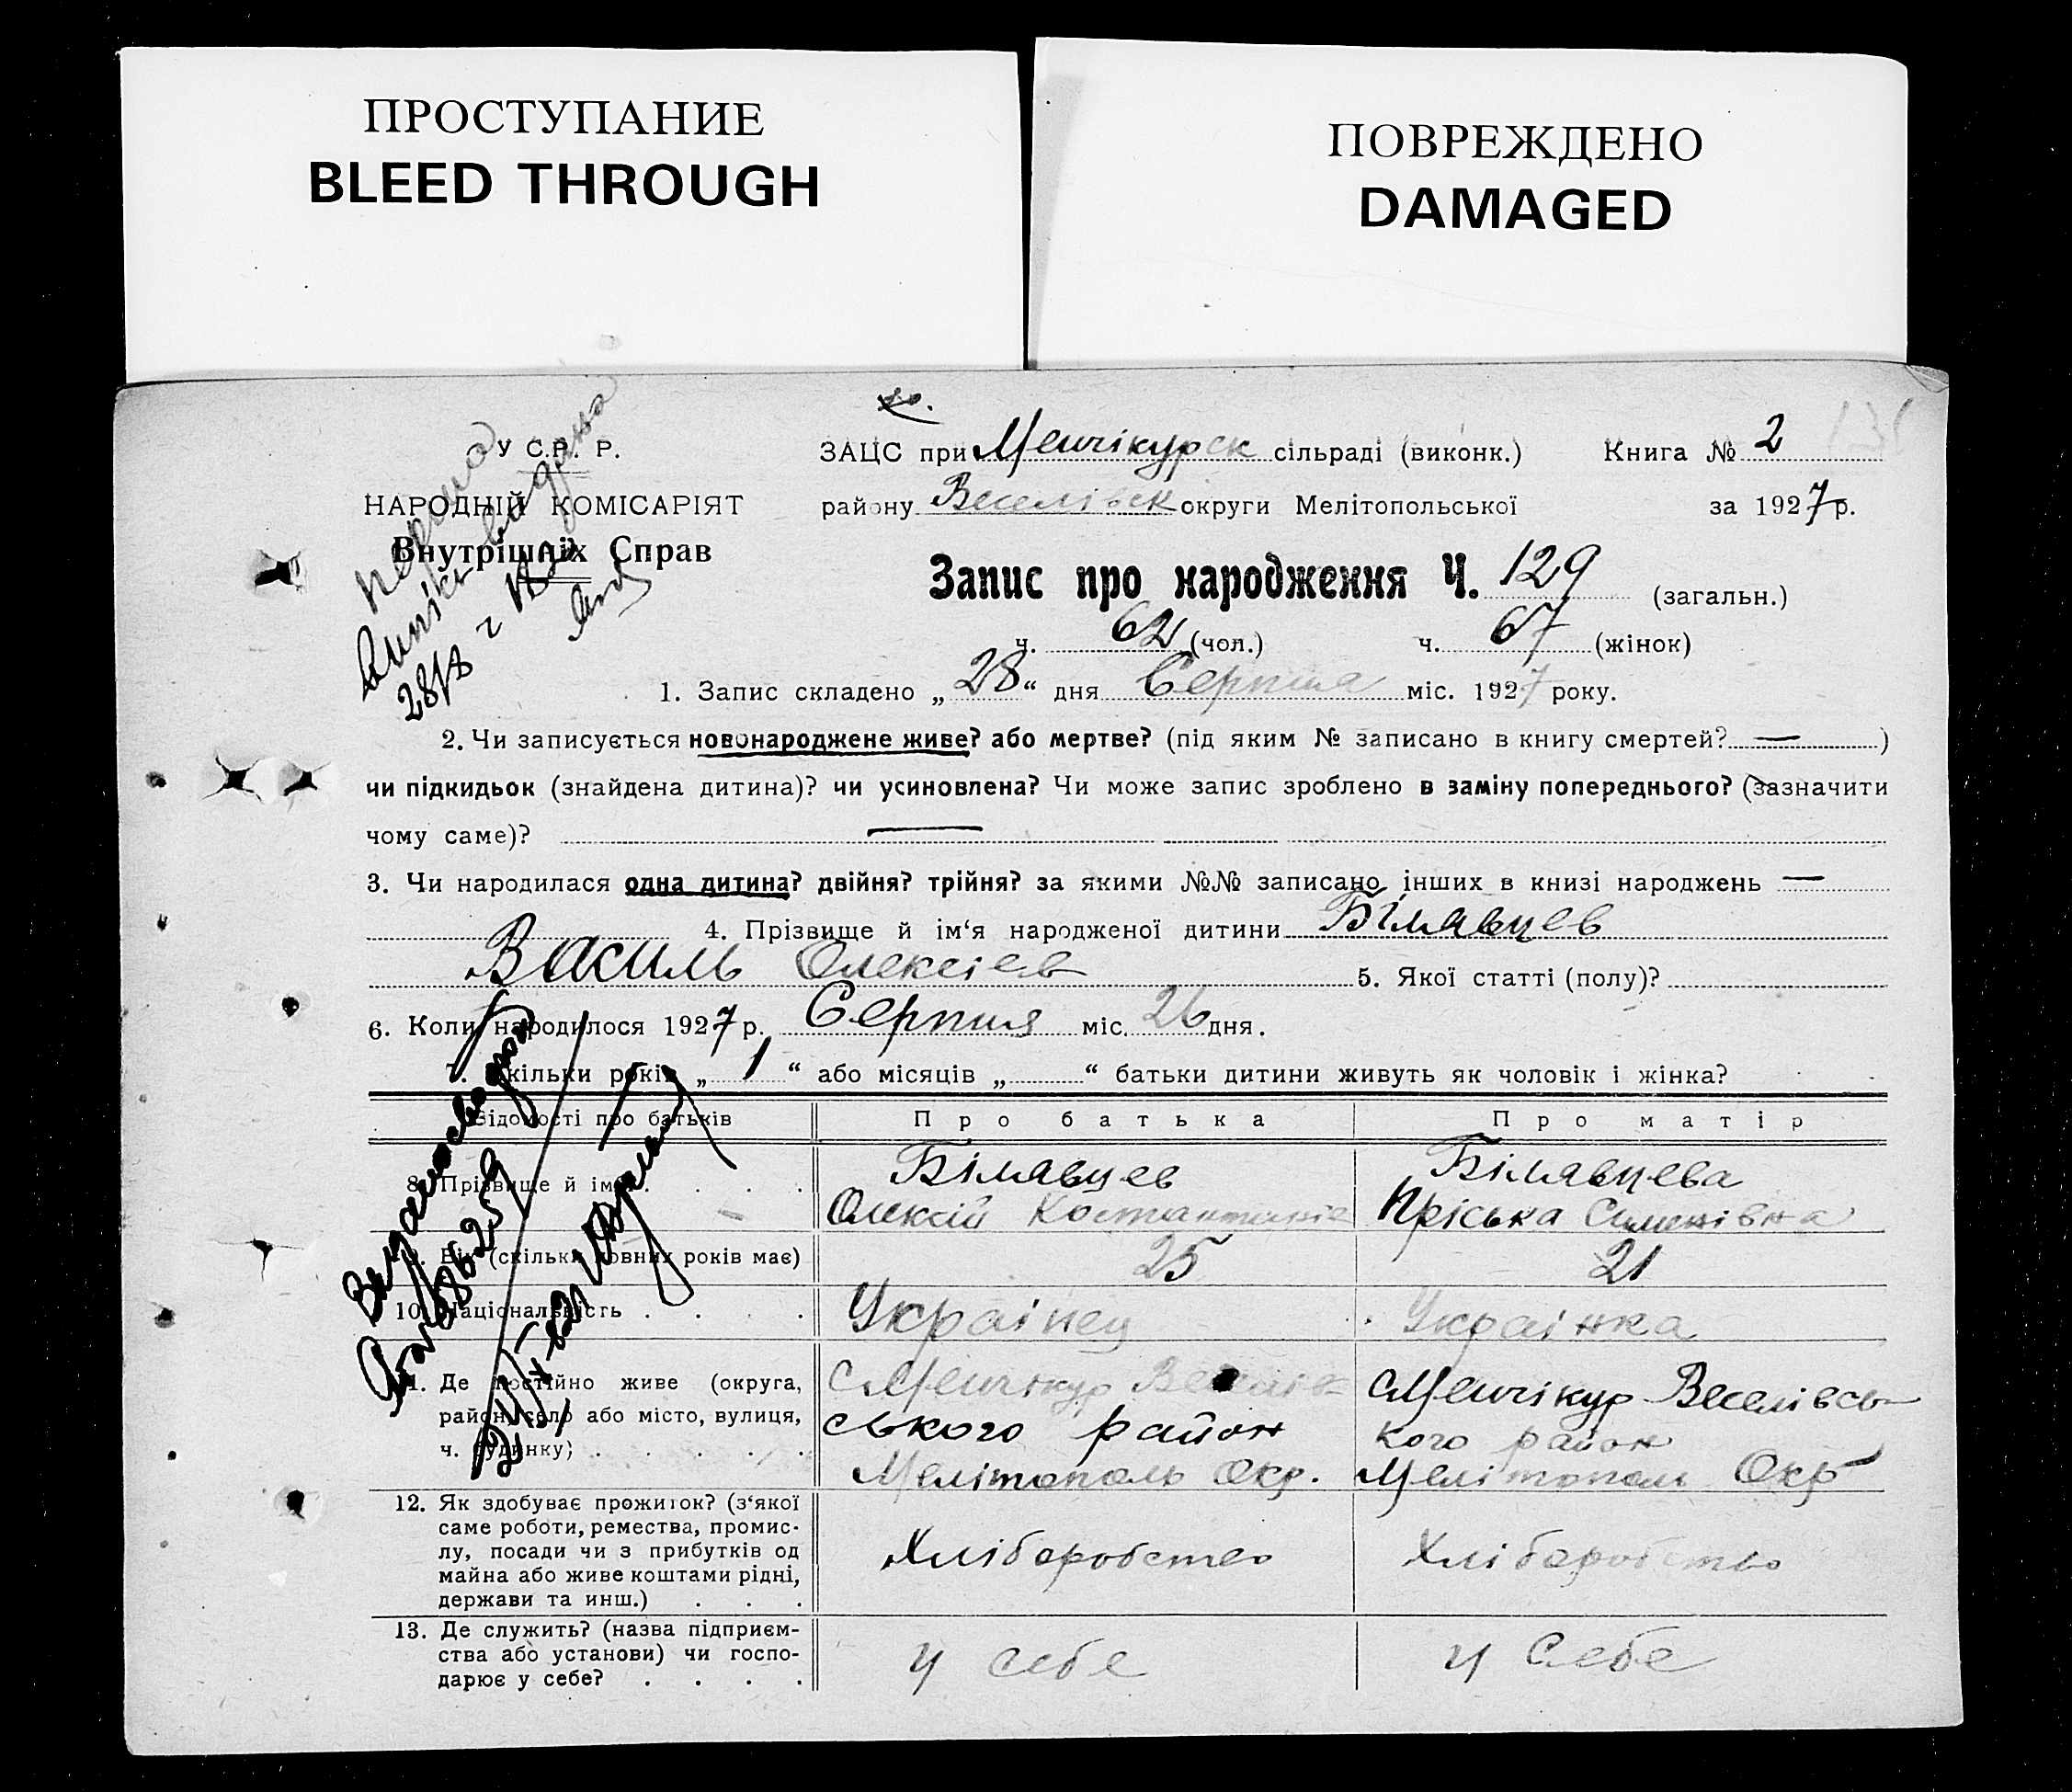 ПРОСТУПАНИЕ
BLEED THROUGH
ПОВРЕЖДЕНО
DAMAGED
У С.Р. Р.
НАРОДНІЙ КОМІСАРІЯТ
Внутрішніх Справ
ЗАЦС при Менчікурск сільраді (виконк.) Книга № 2
району Веселівск округи Мелітопольської за 1927 р.
Запис про народження Ч. 129 (загальн.)
ч. 62 (чол.) ч. 67 (жінок)
1. Запис складено „28“ дня Серпня міс. 1927 року.
2. Чи записується новонароджене живе? або мертве? (під яким № записано в книгу смертей? — )
чи підкидьок (знайдена дитина)? чи усиновлена? Чи може запис зроблено в заміну попереднього? (зазначити
чому саме)? —
3. Чи народилася одна дитина? двійня? трійня? за якими №№ записано інших в книзі народжень —
4. Прізвище й ім‘я народженої дитини Білявцев
Василь Олексіев 5. Якої статті (полу)?
6. Коли народилося 1927 р. Серпня міс. 26 дня.
7. Скільки років „ 1 “ або місяців „ “ батьки дитини живуть як чоловік і жінка?
Відомості про батьків Про батька Про матір
8. Прізвище й ім‘я . . . . Білявцев Білявцева
Олексій Костантинів Пріська Семенівна
9. Вік (скільки повних років має) 25 21
10. Національність . . . . Українец Українка
11. Де постійно живе (округа, с Менчікур Веселів с Менчікур Веселівсь
район, село або місто, вулиця, ського район кого район
ч. будинку) . . . . . Мелітополь Окр. Мелітополь Окр
12. Як здобуває прожиток? (з‘якої
саме роботи, ремества, промис-
лу, посади чи з прибутків од Хліборобство Хліборобство
майна або живе коштами рідні,
держави та инш.) . . .
13. Де служить? (назва підприєм-
ства або установи) чи госпо- у себе у себе
дарює у себе? . . . .